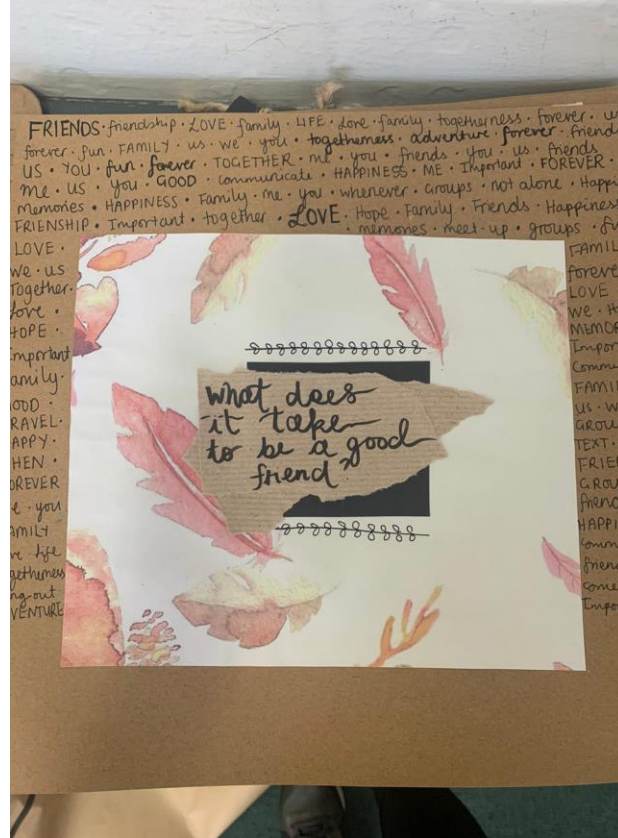 FRIENDS · friendship · LOVE · family · LIFE · love · family · togetherness · forever ·
forever · fun · FAMILY · us · we · you · togetherness · adventure · forever · friend
US · YOU · fun · forever · TOGETHER · me · you · friends · you · us · friends
me · us · you · GOOD · communicate · HAPPINESS · ME · Important · FOREVER ·
memories · HAPPINESS · Family · me · you · whenever · Groups · not alone · Happi
FRIENSHIP · Important · together · LOVE · Hope · Family · Friends · Happiness
memories · meet-up · groups ·
LOVE ·
we · us
Together ·
love ·
HOPE ·
Important
amily ·
OOD ·
RAVEL ·
APPY ·
HEN ·
OREVER
e · you
AMILY
ve · life
getherness
ng-out
VENTURE
what does
it take
to be a good
friend"
FAMIL
foreve
LOVE
we · H
MEMOR
Impor
Commu
FAMI
US · W
GROU
TEXT ·
FRIE
GROU
friend
HAPPI
Comm
frien
come
Impo